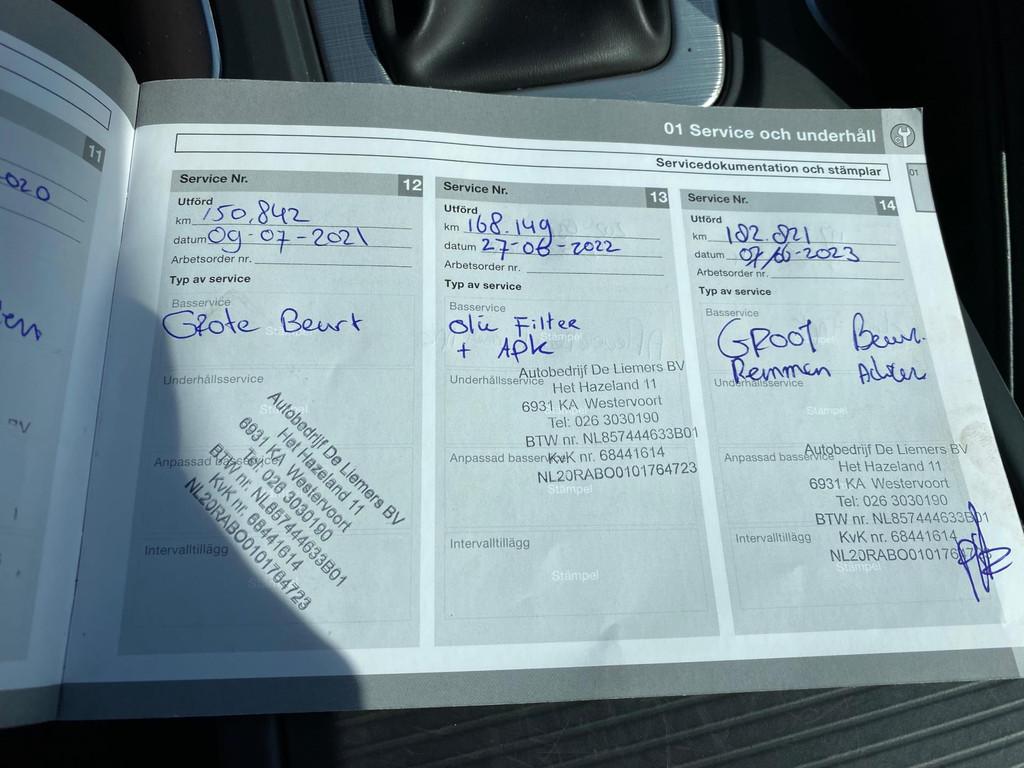 11
020
01 Service och underhåll
Servicedokumentation och stämplar
01
Service Nr. 12
Utförd
km 150,842
datum 09-07-2021
Arbetsorder nr.
Typ av service
Basservice
Grote Beurt
Underhållsservice
Anpassad basservice
Autobedrijf De Liemers BV
Het Hazeland 11
6931 KA Westervoort
Tel: 026 3030190
BTW nr. NL857444633B01
KvK nr. 68441614
NL20RABO0101764723
Intervalltillägg
Service Nr. 13
Utförd
km 168.149
datum 27-06-2022
Arbetsorder nr.
Typ av service
Basservice
Olie Filter
Stämpel
+ APK
Underhållsservice
Autobedrijf De Liemers BV
Het Hazeland 11
6931 KA Westervoort
Tel: 026 3030190
BTW nr. NL857444633B01
Anpassad basservice
KvK nr. 68441614
NL20RABO0101764723
Stämpel
Intervalltillägg
Stämpel
Service Nr. 14
Utförd
km 182.821
datum 07/06-2023
Arbetsorder nr.
Typ av service
Basservice
Groot Beurt.
Remmen Achter
Underhållsservice
Stämpel
Anpassad basservice
Autobedrijf De Liemers BV
Het Hazeland 11
6931 KA Westervoort
Tel: 026 3030190
BTW nr. NL857444633B01
Intervalltillägg
KvK nr. 68441614
Stämpel